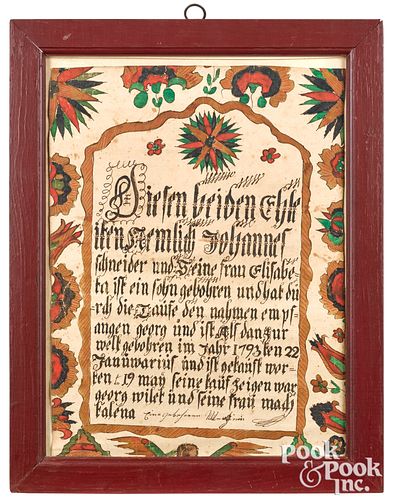 Diesen beiden Ehle
iten Nemlich Johannes
schneider und Seine frau Elisabe
ta ist ein sohn gebohren und hat du
rch die Taufe den nahmen emp
fangen georg und ist Als dan zur
welt gebohren im Jahr 1793 ken 22
Januwarius und ist getauft wor
ken t 19 may seine tauf zeigen war
georg wilet und seine frau mach
talena Eine gebohrene
Pook
& Pook
Inc.